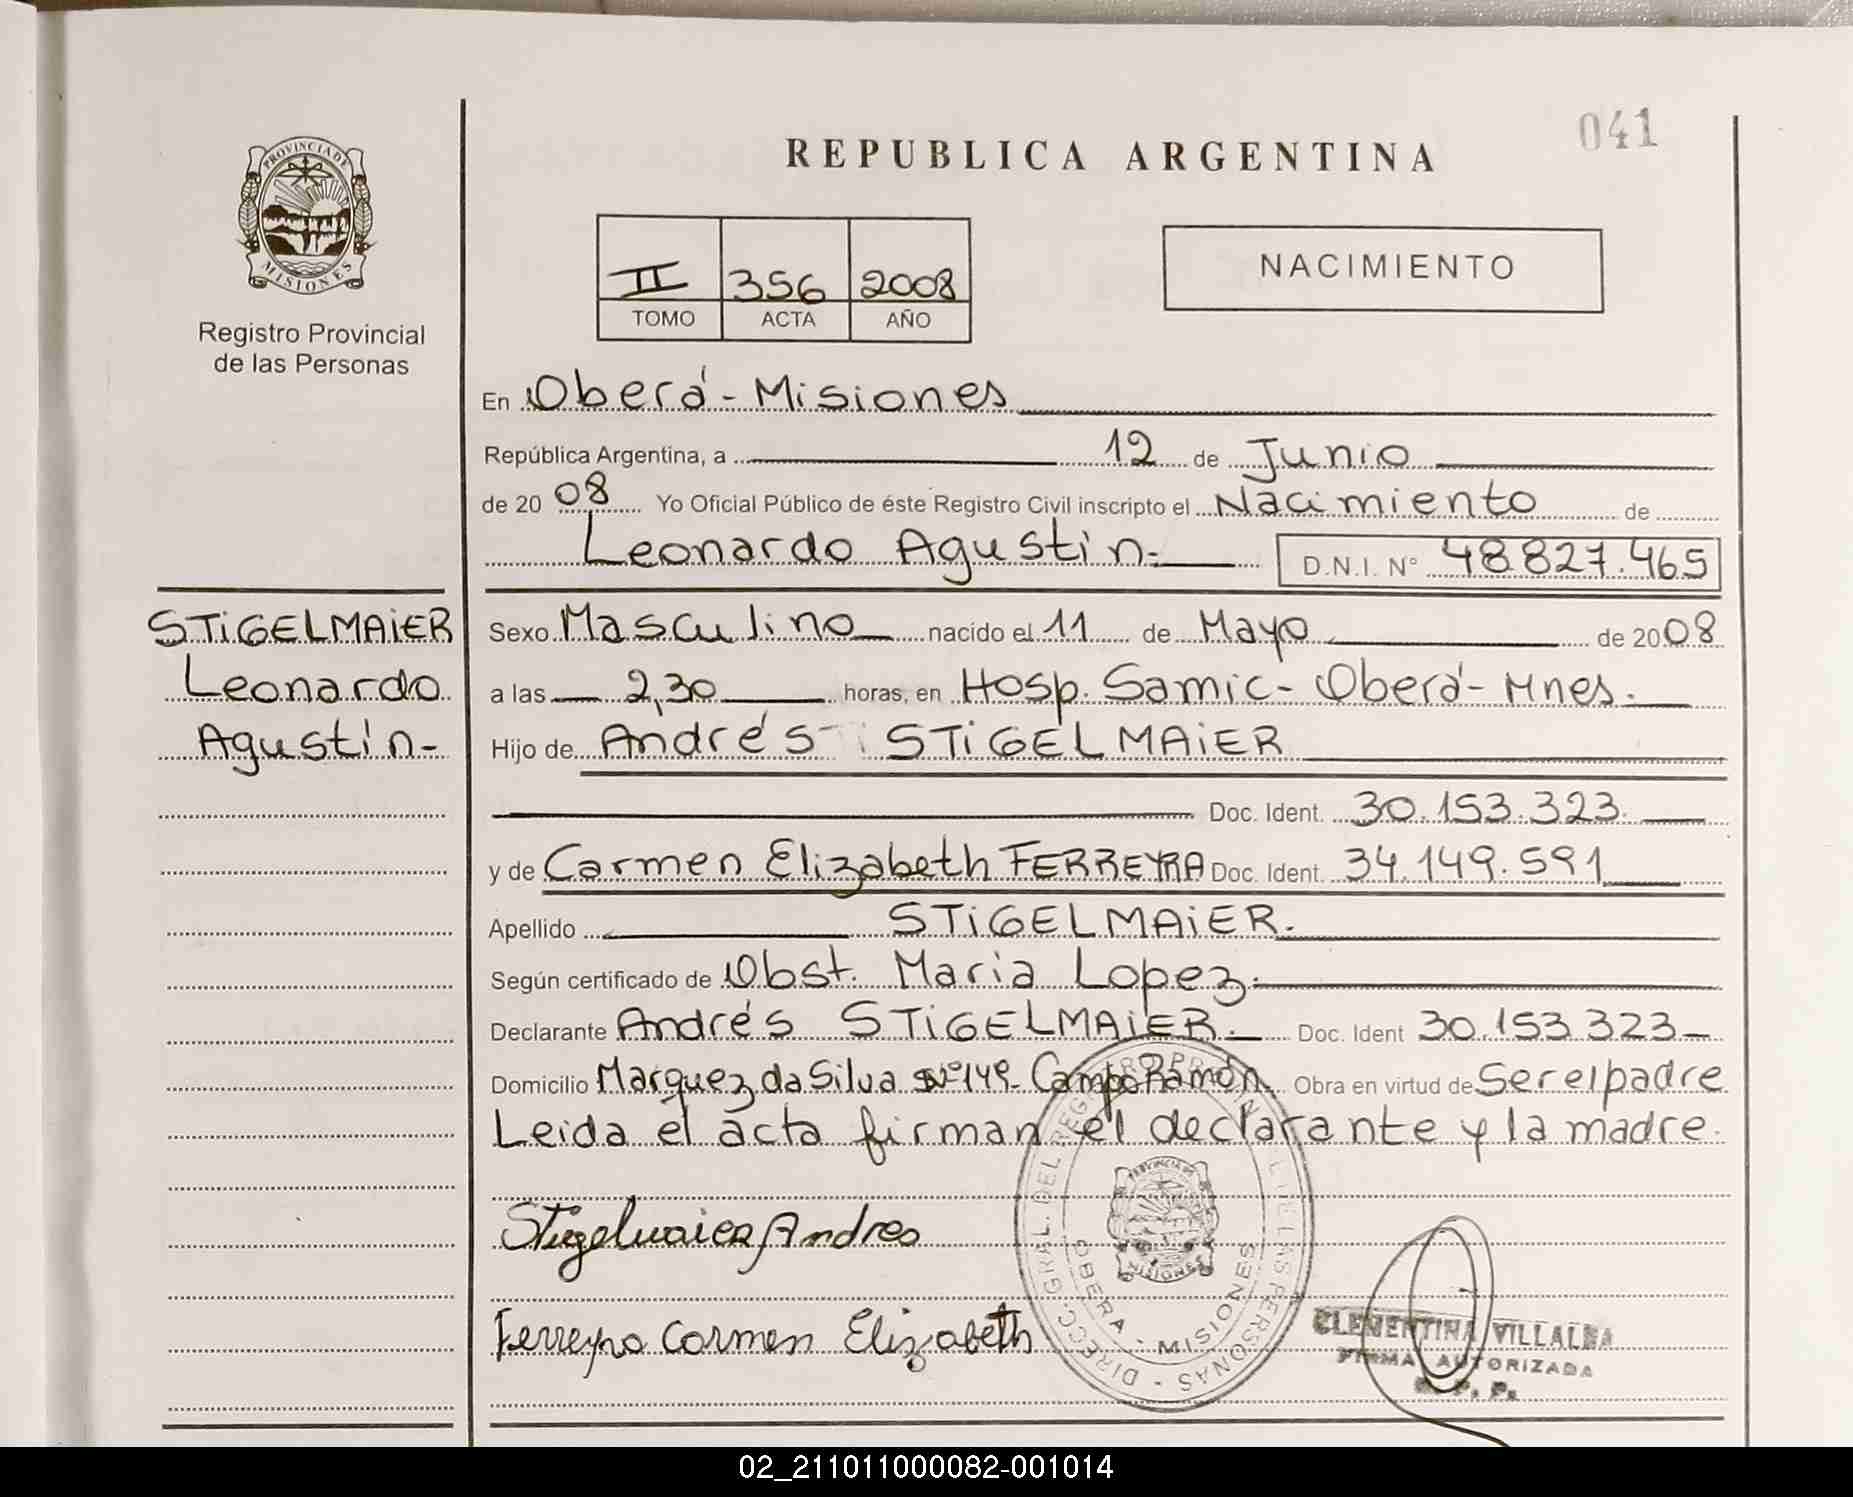 041
REPUBLICA ARGENTINA
PROVINCIA DE
MISIONES
Registro Provincial
de las Personas
II 356 2008
TOMO ACTA AÑO
NACIMIENTO
En Oberá - Misiones
República Argentina, a 12 de Junio
de 20 08 Yo Oficial Público de éste Registro Civil inscripto el Nacimiento de
Leonardo Agustín.- D.N.I. Nº 48.827.465
STiGELMAiER
Leonardo
Agustín-
Sexo Masculino nacido el 11 de Mayo de 2008
a las 2,30 horas, en Hosp. Samic - Oberá - Mnes.
Hijo de Andrés STiGELMAiER
Doc. Ident. 30.153.323.
y de Carmen Elizabeth FERREYRA Doc. Ident. 34.149.591
Apellido STiGELMAiER.
Según certificado de Obst. Maria Lopez.
Declarante Andrés STiGELMAiER. Doc. Ident 30.153.323
Domicilio Marquez da Silva Nº149- Campo Ramón. Obra en virtud de Ser el padre
Leida el acta firman el declarante y la madre.
Stigelmaier Andres
Ferreyra Carmen Elizabeth
DIRECC. GRAL. DEL REGISTRO PROVINCIAL DE LAS PERSONAS -
PROVINCIA DE
MISIONES
OBERA - MISIONES
CLEMENTINA VILLALBA
FIRMA AUTORIZADA
R. P. P.
02_211011000082-001014